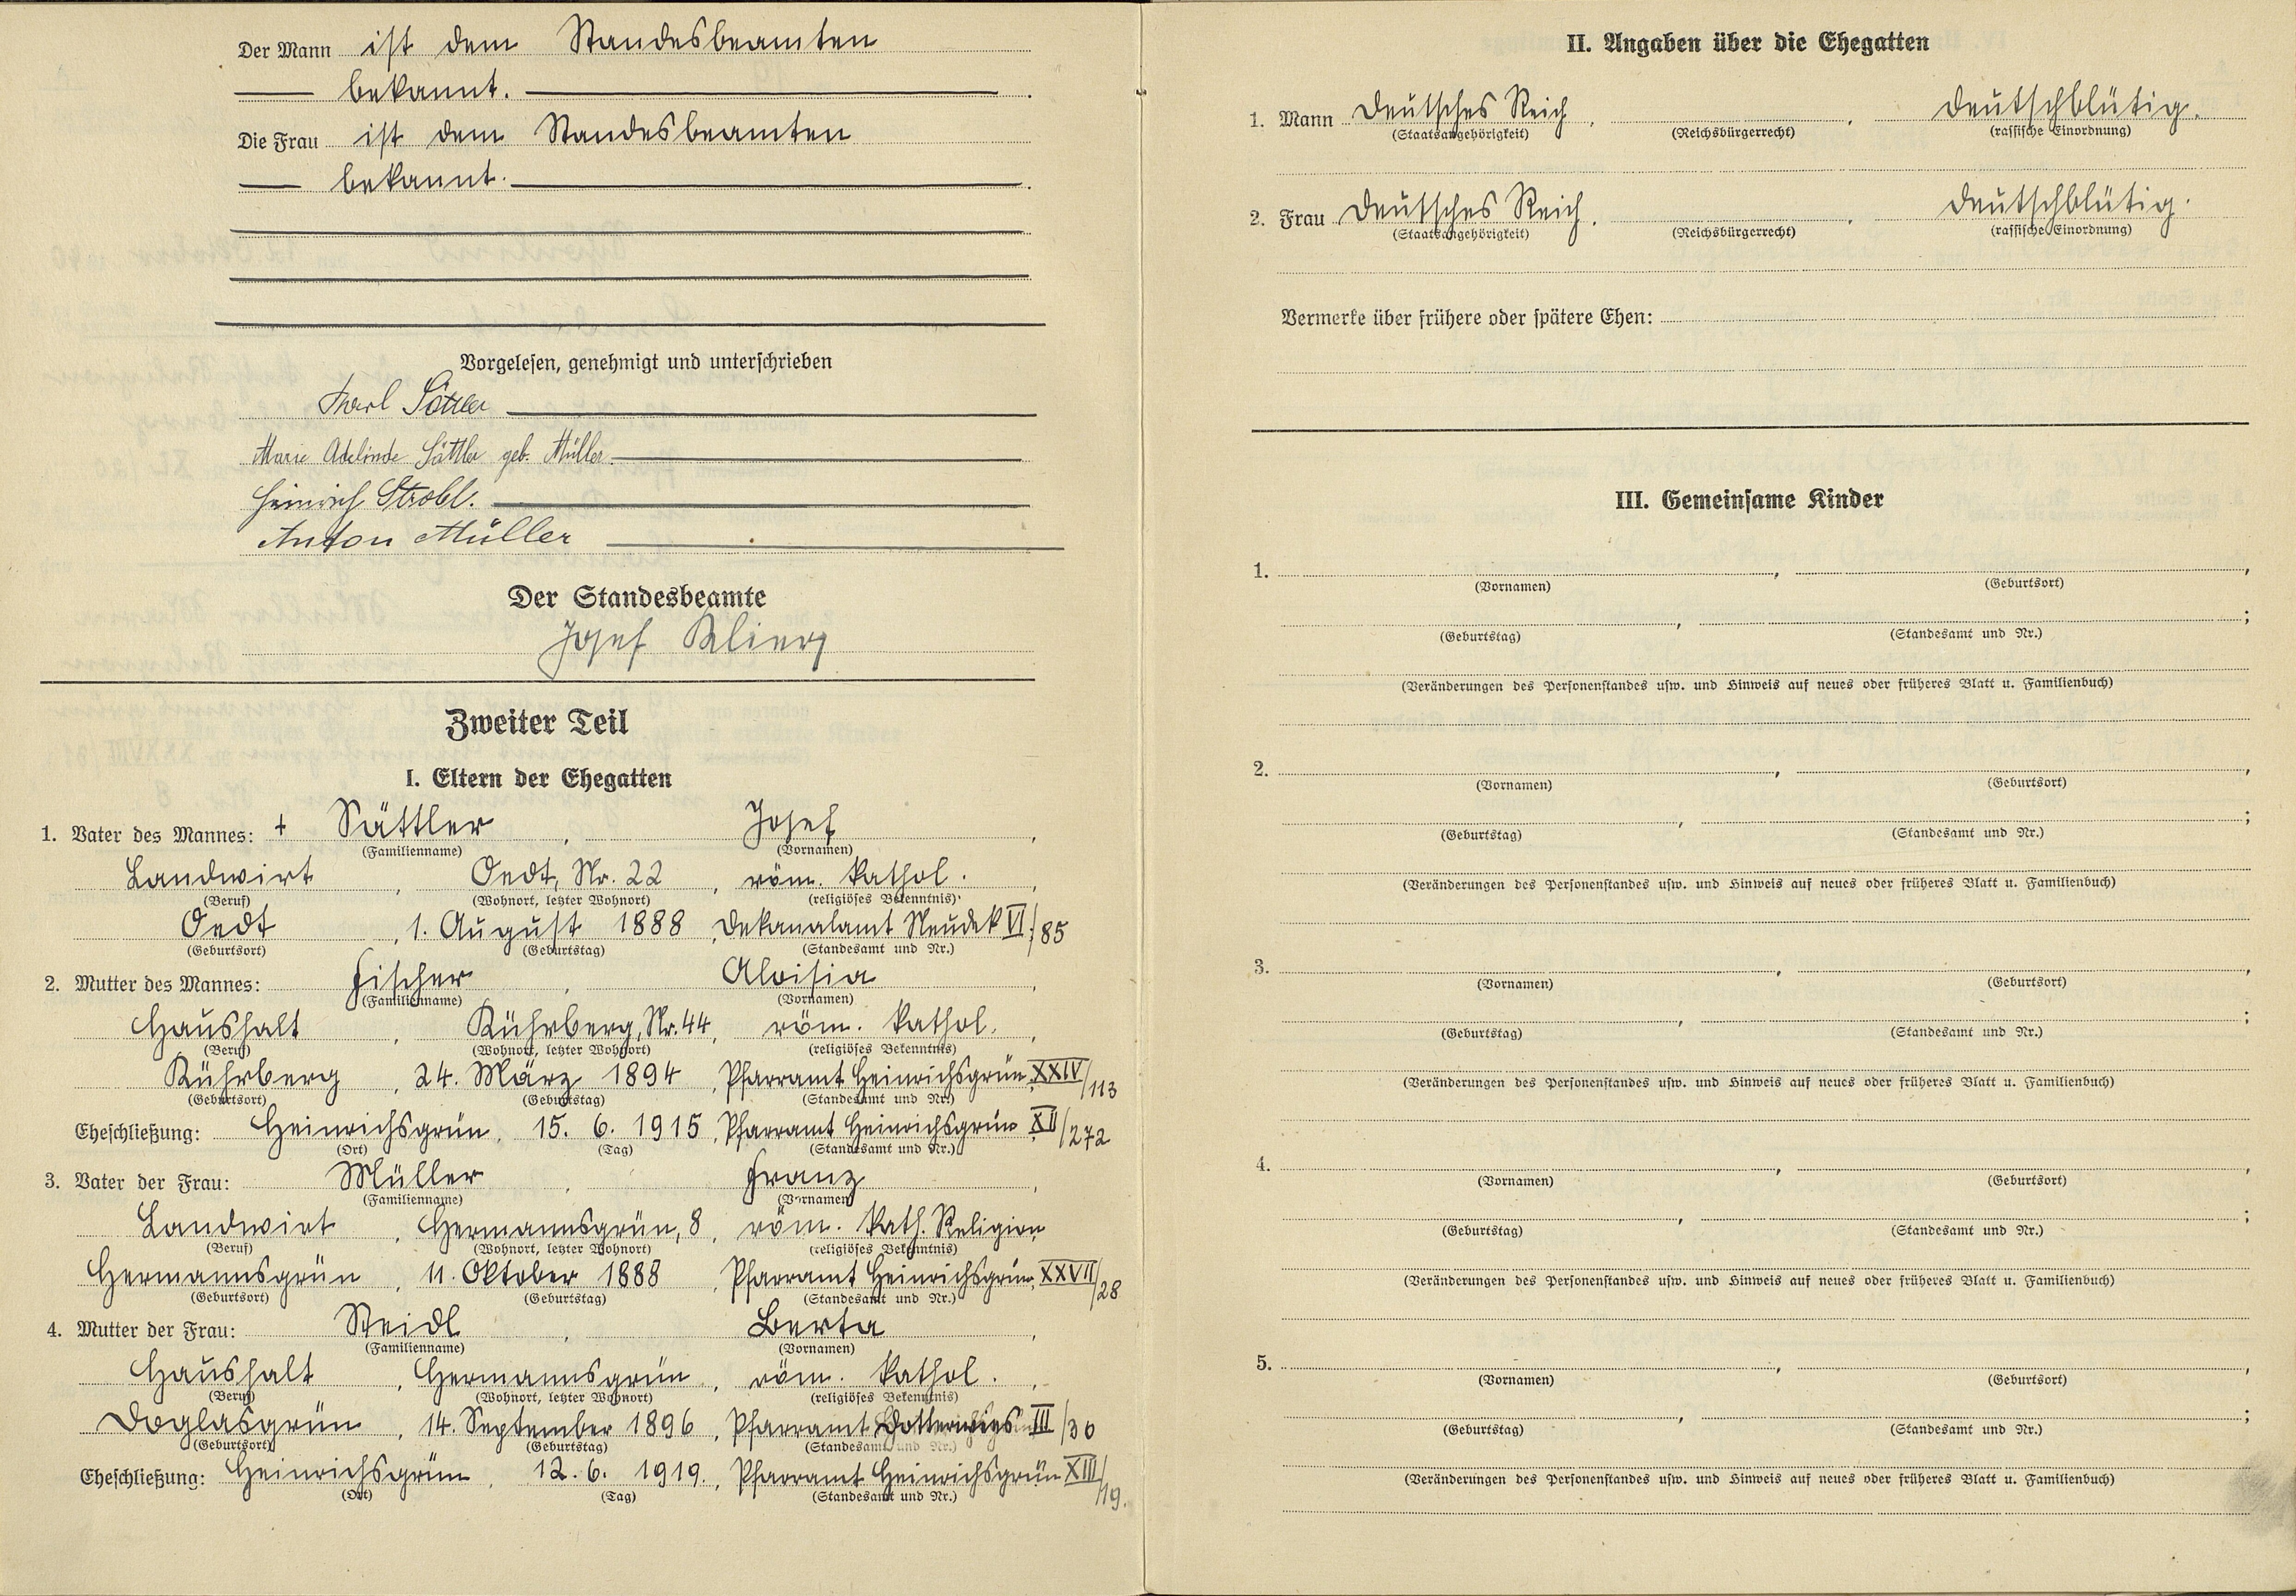 Der Mann ist dem Standesbeamten
bekannt.
Die Frau ist dem Standesbeamten
bekannt.
Vorgelesen, genehmigt und unterschrieben
Karl Sättler
Marie Adelinde Sättler geb. Müller.
Heinrich Strobl.
Anton Müller
Der Standesbeamte
Josef
Zweiter Teil
I. Eltern der Ehegatten
1. Vater des Mannes: + Sättler, Josef,
(Familienname) (Vornamen)
Landwirt, Oedt, Nr. 22, röm. kathol.,
(Beruf) (Wohnort, letzter Wohnort) (religiöses Bekenntnis)
Oedt, 1. August 1888, Dekanalamt Neudek VI/85
(Geburtsort) (Geburtstag) (Standesamt und Nr.)
2. Mutter des Mannes: Fischer, Aloisia,
(Familienname) (Vornamen)
Haushalt, Kührberg, Nr. 44, röm. kathol.,
(Beruf) (Wohnort, letzter Wohnort) (religiöses Bekenntnis)
Kührberg, 24. März 1894, Pfarramt Heinrichsgrün XXIV/113
(Geburtsort) (Geburtstag) (Standesamt und Nr.)
Eheschließung: Heinrichsgrün, 15. 6. 1915, Pfarramt Heinrichsgrün XII/272
(Ort) (Tag) (Standesamt und Nr.)
3. Vater der Frau: Müller, Franz,
(Familienname) (Vornamen)
Landwirt, Hermannsgrün, 8, röm. kath. Religion,
(Beruf) (Wohnort, letzter Wohnort) (religiöses Bekenntnis)
Hermannsgrün, 11. Oktober 1888, Pfarramt Heinrichsgrün, XXVII/28
(Geburtsort) (Geburtstag) (Standesamt und Nr.)
4. Mutter der Frau: Steidl, Berta,
(Familienname) (Vornamen)
Haushalt, Hermannsgrün, röm. kathol.,
(Beruf) (Wohnort, letzter Wohnort) (religiöses Bekenntnis)
Doglasgrün, 14. September 1896, Pfarramt III/30
(Geburtsort) (Geburtstag) (Standesamt und Nr.)
Eheschließung: Heinrichsgrün, 12. 6. 1919., Pfarramt Heinrichsgrün XIII/19.
(Ort) (Tag) (Standesamt und Nr.)
II. Angaben über die Ehegatten
1. Mann Deutsches Reich, , deutschblütig.
(Staatsangehörigkeit) (Reichsbürgerrecht) (rassische Einordnung)
2. Frau Deutsches Reich, , deutschblütig.
(Staatsangehörigkeit) (Reichsbürgerrecht) (rassische Einordnung)
Vermerke über frühere oder spätere Ehen:
III. Gemeinsame Kinder
1. , ,
(Vornamen) (Geburtsort)
, ;
(Geburtstag) (Standesamt und Nr.)
(Veränderungen des Personenstandes usw. und Hinweis auf neues oder früheres Blatt u. Familienbuch)
2. , ,
(Vornamen) (Geburtsort)
, ;
(Geburtstag) (Standesamt und Nr.)
(Veränderungen des Personenstandes usw. und Hinweis auf neues oder früheres Blatt u. Familienbuch)
3. , ,
(Vornamen) (Geburtsort)
, ;
(Geburtstag) (Standesamt und Nr.)
(Veränderungen des Personenstandes usw. und Hinweis auf neues oder früheres Blatt u. Familienbuch)
4. , ,
(Vornamen) (Geburtsort)
, ;
(Geburtstag) (Standesamt und Nr.)
(Veränderungen des Personenstandes usw. und Hinweis auf neues oder früheres Blatt u. Familienbuch)
5. , ,
(Vornamen) (Geburtsort)
, ;
(Geburtstag) (Standesamt und Nr.)
(Veränderungen des Personenstandes usw. und Hinweis auf neues oder früheres Blatt u. Familienbuch)